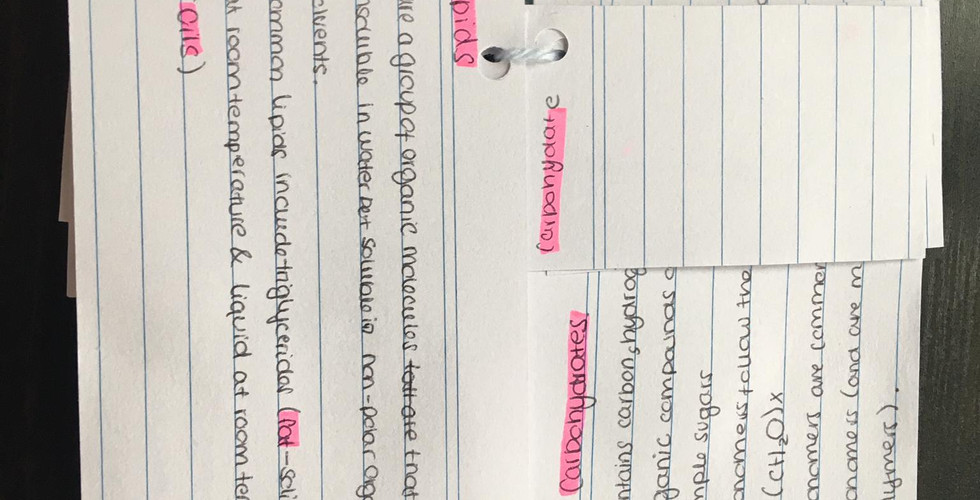 pids
are a group of organic molecules that are that
nsoluble in water but soluble in non-polar org
olvents.
ommon lipids include triglycerides (fat - soli
at room temperature & liquid at room te
oils)
Carbohydrate
Carbohydrates
ntains carbon, hydrog
ganic compounds o
mple sugars
nomers follow the
(CH₂O)x
nomers are common
nomers (and are m
lymers).